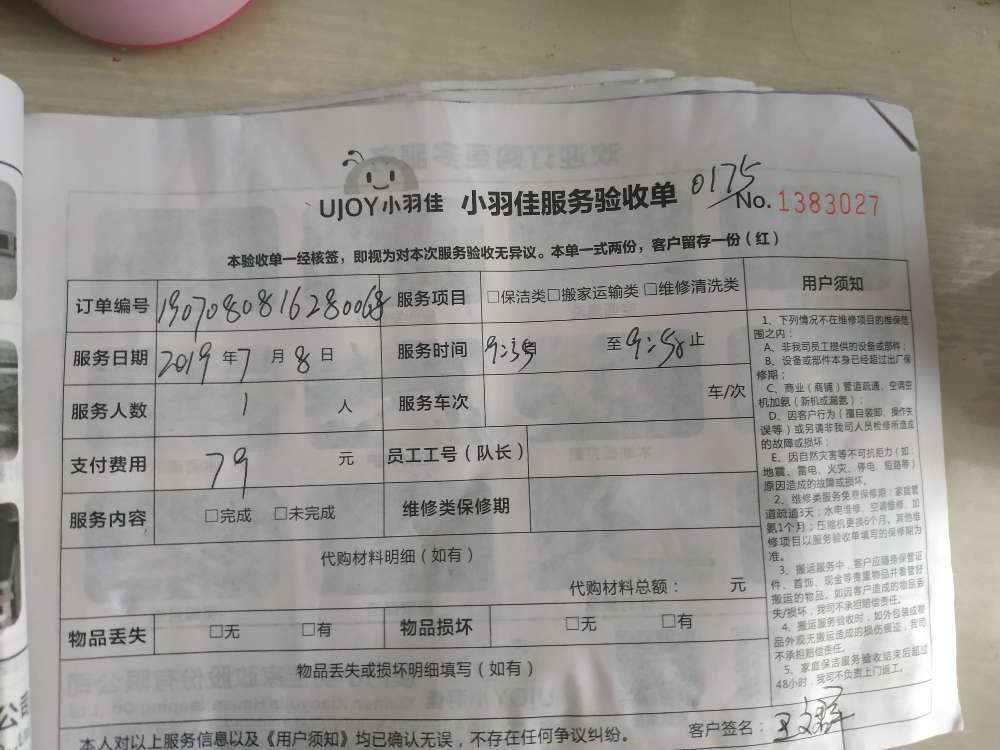 UJOY小羽佳 小羽佳服务验收单 0175 No. 1383027
本验收单一经核签，即视为对本次服务验收无异议。本单一式两份，客户留存一份（红）
订单编号 1907080816280068 服务项目 □保洁类□搬家运输类 □维修清洗类
服务日期 2019年7月8日 服务时间 至9:50止
服务人数 1 人 服务车次 车/次
支付费用 79 元 员工工号（队长）
服务内容 □完成 □未完成 维修类保修期
代购材料明细（如有）
代购材料总额： 元
物品丢失 □无 □有 物品损坏 □无 □有
物品丢失或损坏明细填写（如有）
本人对以上服务信息以及《用户须知》均已确认无误，不存在任何争议纠纷。 客户签名：
用户须知
1、下列情况不在维修项目的维保范
围之内：
A、非我司员工提供的设备或部件；
B、设备或部件本身已经超过出厂保
修期；
C、商业（商铺）管道疏通、空调空
机加氨（新机或漏氨）；
D、因客户行为（擅自装卸、操作失
误等）或另请非我司人员检修所造成
的故障或损坏；
E、因自然灾害等不可抗拒力（如：
地震、雷电、火灾、停电、短路等）
原因造成的故障或损坏。
2、维修类服务免费保修期：家庭管
道疏通3天；水电维修、空调维修、加
氨1个月；压缩机更换6个月。其他维
修项目以服务验收单填写的保修期为
准。
3、搬运服务中，客户应随身保管证
件、首饰、现金等贵重物品并看管好
搬运的物品。如因客户造成的物品丢
失/损坏，我司不承担赔偿责任。
4、搬运服务验收时，如外包装或零
品外观无搬运造成的损伤痕迹，我司
不承担赔偿责任。
5、家庭保洁服务验收结束后超过
48小时，我司不负责上门返工。